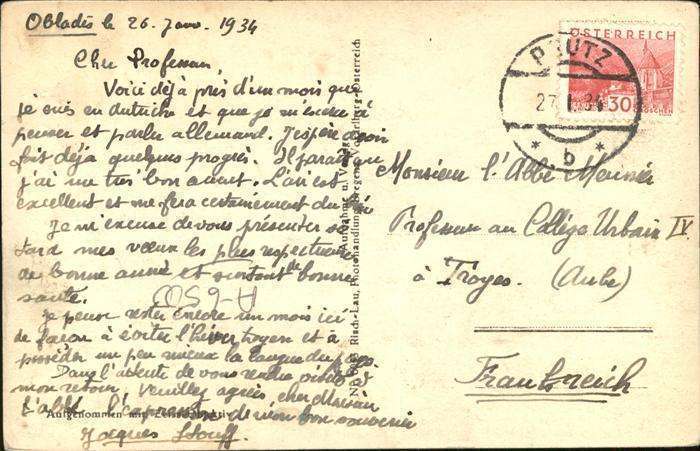 Obladis le 26 Janv. 1934
Cher Professeur,
Voici déjà près d'un mois que
je suis en Autriche et que je m'exerce à
penser et parler allemand. J'espère avoir
fait déjà quelques progrès. Il paraît que
j'ai un très bon accent. L'air est
excellent et me fera certainement du bien
Je m'excuse de vous présenter si
tard mes vœux les plus respectueux
de bonne année et surtout de bonne
santé.
A-650
Je pense rester encore un mois ici
de façon à éviter l'hiver troyen et à
posséder un peu mieux la langue du pays.
Dans l'attente de vous rendre visite à
mon retour, veuillez agréer, cher Monsieur
l'abbé l'expression de mon bon souvenir
Jacques
Aufgenommen mit
Aufnahme u. Verlag
Risch-Lau, Photohandlung, Bregenz, Vorarlberg-Österreich
ÖSTERREICH
30
PRUTZ
27. I. 34
* b *
Monsieur l'Abbé Meunier
Professeur au Collège Urbain IV
à Troyes. (Aube)
Frankreich